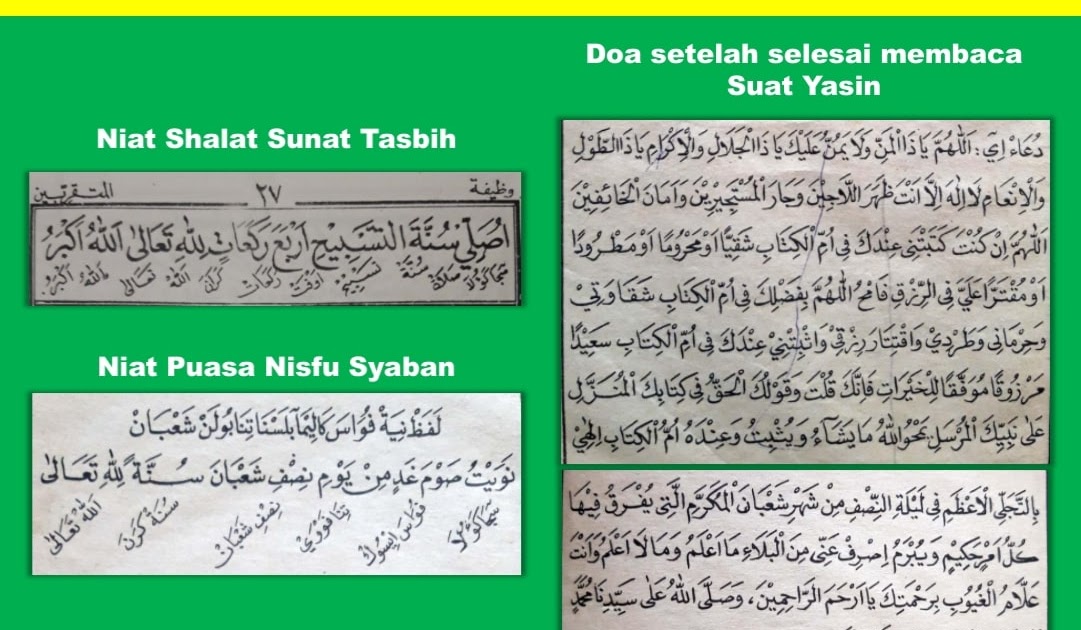 Niat Shalat Sunat Tasbih
وظيفة ٢٧ المتقربين
اُصَلِّيْ سُنَّةَ التَّسْبِيْحِ اَرْبَعَ رَكَعَاتٍ لِلّٰهِ تَعَالىٰ اَللّٰهُ اَكْبَرُ
سنة تسبيح رکعات كرن الله تعالى الله اكبر
Niat Puasa Nisfu Syaban
لَفَظْ نِيَةْ فُوَاسَ شَعْبَانْ
نَوَيْتُ صَوْمَ غَدٍ مِنْ يَوْمِ نِصْفِ شَعْبَانَ سُنَّةً لِلّٰهِ تَعَالىٰ
فواس ايسوء نصف شعبان سنة كرن الله تعالى
Doa setelah selesai membaca
Suat Yasin
دُعَاءْ اِيْ : اَللّٰهُمَّ يَا ذَا الْمَنِّ وَلَا يَمُنُّ عَلَيْكَ يَا ذَا الْجَلَالِ وَالْاِكْرَامِ يَا ذَا الطَّوْلِ
وَالْاِنْعَامِ لَا اِلٰهَ اِلَّا اَنْتَ ظَهَرَ اللَّاجِيْنَ وَجَارَ الْمُسْتَجِيْرِيْنَ وَاَمَانَ الْخَائِفِيْنَ
اَللّٰهُمَّ اِنْ كُنْتَ كَتَبْتَنِى عِنْدَكَ فِى اُمِّ الْكِتَابِ شَقِيًّا اَوْ مَحْرُوْمًا اَوْ مَطْرُوْدًا
اَوْ مُقْتَرًا عَلَيَّ فِى الرِّزْقِ فَامْحُ اللّٰهُمَّ بِفَضْلِكَ فِى اُمِّ الْكِتَابِ شَقَاوَتِيْ
وَحِرْمَانِى وَطَرْدِيْ وَاقْتِتَارَ رِزْقِيْ وَاثْبِتْنِيْ عِنْدَكَ فِى اُمِّ الْكِتَابِ سَعِيْدًا
مَرْزُوْقًا مُوَفَّقًا لِلْخَيْرَاتِ فَاِنَّكَ قُلْتَ وَقَوْلُكَ الْحَقُّ فِى كِتَابِكَ الْمُنَزَّلِ
عَلَى نَبِيِّكَ الْمُرْسَلِ يَمْحُو اللّٰهُ مَا يَشَآءُ وَيُثْبِتُ وَعِنْدَهُ اُمُّ الْكِتَابِ اِلٰهِيْ
بِالتَّجَلِّى الْاَعْظَمِ فِى لَيْلَةِ النِّصْفِ مِنْ شَهْرِ شَعْبَانَ الْمُكَرَّمِ الَّتِى يُفْرَقُ فِيْهَا
كُلُّ اَمْرٍ حَكِيْمٍ وَيُبْرَمُ اِصْرِفْ عَنِّى مِنَ الْبَلَاءِ مَا اَعْلَمُ وَمَا لَا اَعْلَمُ وَاَنْتَ
عَلَّامُ الْغُيُوْبِ بِرَحْمَتِكَ يَا اَرْحَمَ الرَّاحِمِيْنَ، وَصَلَّى اللّٰهُ عَلَى سَيِّدِنَا مُحَمَّدٍ